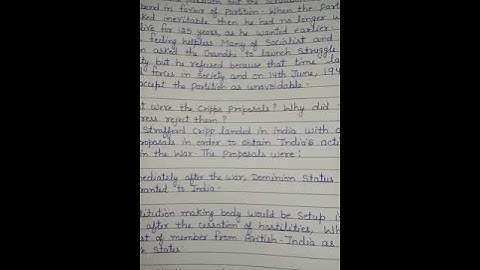 in favour of partition. When the Part
inevitable then he had no longer w
live for 125 years, as he wanted earlier
feeling helpless Many of Socialist and
asked the Gandhi to launch struggle
ty but he refused because that time
forces in Society and on 14th June, 194
accept the Partition as unavoidable.
t were the Cripps Proposals? Why did
gress reject them?
Strafford Cripp landed in india with
roposals in order to obtain India's acti
in the War. The proposals were:
mediately after the war, Dominion Status
ranted to India.
titution making body would be Setup i
after the cessation of hostilities, Wh
st of member from British-India as
States